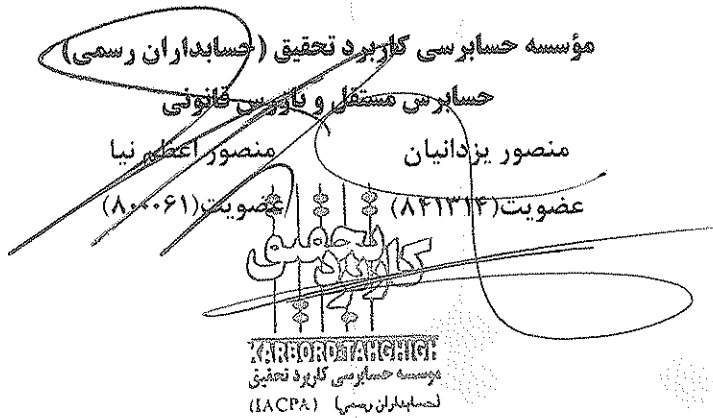 مؤسسه حسابرسی کاربرد تحقیق (حسابداران رسمی)
حسابرس مستقل و بازرس قانونی
منصور یزدانیان منصور اعظم نیا
عضویت(۸۴۱۳۱۴) عضویت(۸۰۰۰۶۱)
کاربرد تحقیق
KARBORD TAHGHIGH
موسسه حسابرسی کاربرد تحقیق
(حسابداران رسمی) (IACPA)